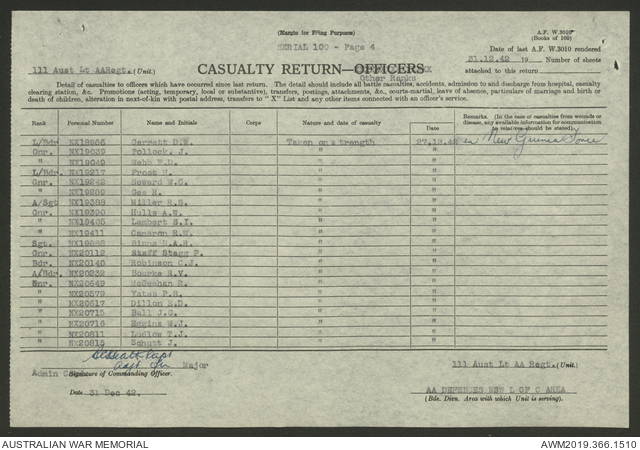 (Margin for Filing Purposes)
A.F. W.3010
(Books of 100)
SERIAL 100 - Page 4
Date of last A.F. W.3010 rendered
31.12.42 19 Number of sheets
attached to this return
111 Aust Lt AARegt. (Unit.)
CASUALTY RETURN—OFFICERS
Other Ranks
Detail of casualties to officers which have occurred since last return. The detail should include all battle casualties, accidents, admission to and discharge from hospital, casualty
clearing station, &c. Promotions (acting, temporary, local or substantive), transfers, postings, attachments, &c., courts-martial, leave of absence, particulars of marriage and birth or
death of children, alteration in next-of-kin with postal address, transfers to "X" List and any other items connected with an officer's service.
Rank Personal Number Name and Initials Corps Nature and date of casualty Date
Remarks. (In the case of casualties from wounds or
disease, any available information for communication
to relatives should be stated).
L/Bdr NX18966 Garratt D.W. Taken on strength 27.12.42 New Guinea Force
Gnr. NX19039 Pollock. J. " "
" NX19049 Webb F.D. " "
L/Bdr. NX19217 Frost H. " "
Gnr. NX19242 Seward W.C. " "
" NX19289 Gee H. " "
A/Sgt NX19388 Miller R.S. " "
Gnr. NX19390 Hulls A.W. " "
" NX19405 Lambert S.I. " "
" NX19411 Cameron R.W. " "
Sgt. NX19888 Binns N.A.H. " "
Gnr. NX20112 Staff Stagg P. " "
Bdr. NX20140 Robinson C.J. " "
A/Bdr. NX20232 Bourke R.V. " "
Gnr. NX20649 McGeehan R. " "
" NX20579 Yates P.S. " "
" NX20617 Dillon E.D. " "
" NX20715 Ball J.G. " "
" NX20716 Eggins W.J. " "
" NX20811 Ludlow T.J. " "
" NX20815 Schutt J. " "
Capt
Major
Admin Comd
Signature of Commanding Officer.
111 Aust Lt AA Regt. (Unit.)
Date 31 Dec 42.
AA DEFENCES NSW L OF C AREA
(Bde. Divn. Area with which Unit is serving).
AUSTRALIAN WAR MEMORIAL
AWM2019.366.1510